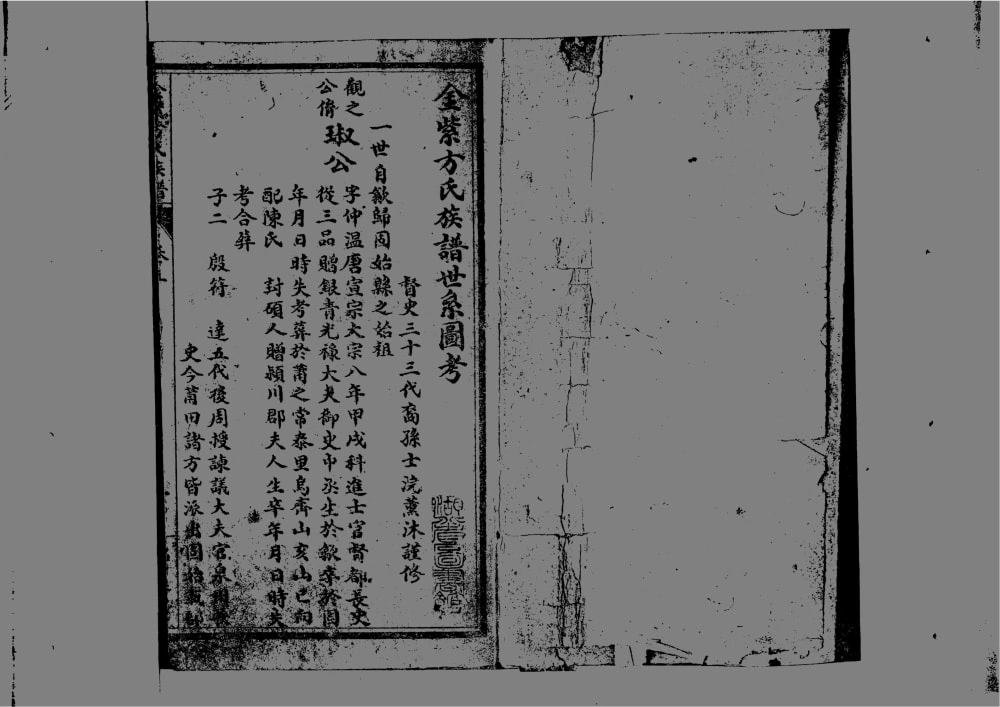 金紫方氏族譜世系圖考
督史三十三代裔孫士浣薰沐謹修
一世自歙歸固始縣之始祖
觀之
公脩
琡公
字仲温唐宣宗大宗八年甲戌科進士官督都長史
從三品贈銀青光祿大夫御史中丞生於歙卒於固
年月日時失考葬於莆之常泰里烏齊山亥山巳向
配陳氏 封碩人贈潁川郡夫人生卒年月日時失
考合葬
子二 殷符 達五代後周授諫議大夫官泉州
史今莆田諸方皆派出固始
氏族譜